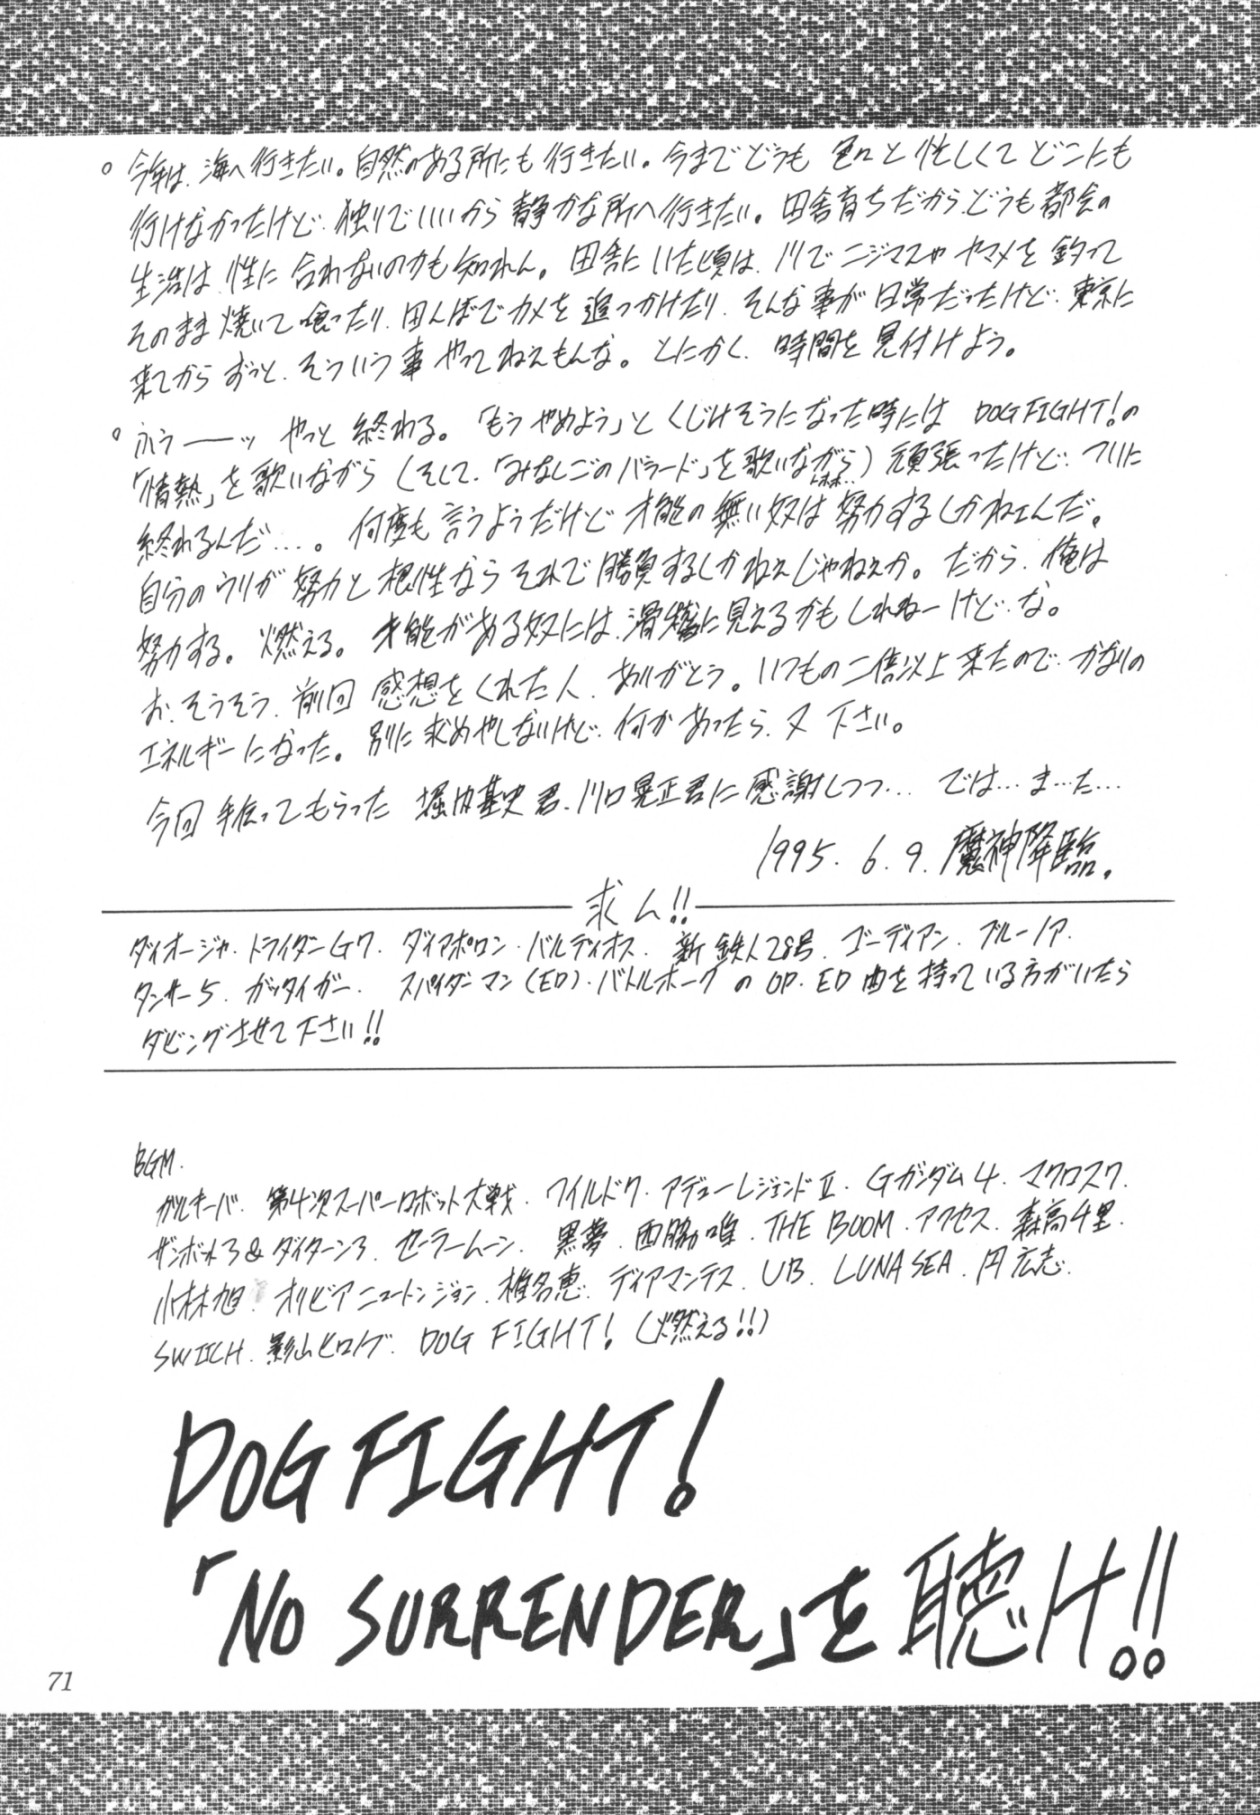 。今年は、海へ行きたい。自然のある所にも行きたい。今までどうも色々と忙しくてどこにも
行けなかったけど、独りでいいから静かな所へ行きたい。田舎育ちだからどうも都会の
生活は性に合わないのかも知れん。田舎にいた頃は、川でニジマスやヤマメを釣って
そのまま焼いて喰ったり、田んぼでカメを追っかけたり、そんな事が日常だったけど、東京に
来てからずっと、そういう事やってねえもんな。とにかく、時間を見付けよう。
。ふうーーッ やっと終わる。「もうやめよう」とくじけそうになった時には DOG FIGHT!の
「情熱」を歌いながら(そして、「みなしごのバラード」を歌いながら)頑張ったけど、ついに
終わるんだ…。何度も言うようだけど才能の無い奴は努力するしかねェんだ。
自分のウリが努力と根性ならそれで勝負するしかねえじゃねえか。だから、俺は
努力する。燃える。才能がある奴には、滑稽に見えるかもしれねーけど、な。
お、そうそう、前回感想をくれた人、ありがとう。いつもの二倍以上来たので、かなりの
エネルギーになった。別に求めやしないけど、何かあったら、又下さい。
今回手伝ってもらった 堀内基史君、川口晃正君に感謝しつつ… では…ま…た…
1995. 6. 9. 魔神降臨.
求ム!!
ダイオージャ、トライダーG7、ダイアポロン、バルディオス、新鉄人28号、ゴーディアン、ブルーノア、
タンサー5、ガッタイガー、スパイダーマン(ED)、バトルホークのOP、ED曲を持っている方がいたら
ダビングさせて下さい!!
BGM.
ガルキーバ、第4次スーパーロボット大戦、ワイルド7、アデューレジェンドII、Gガンダム4、マクロス7、
ザンボット3&ダイターン3、セーラームーン、黒夢、西脇唯、THE BOOM、アクセス、森高千里、
小林旭、オリビアニュートンジョン、椎名恵、ディアマンテス、UB、LUNA SEA、円広志、
SWITCH、影山ヒロノブ、DOG FIGHT!(燃える!!)
DOG FIGHT!
「NO SURRENDER」を聴け!!
71